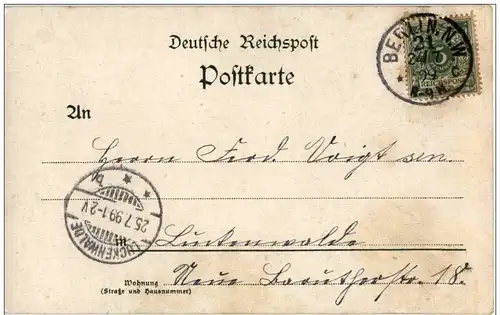 Deutsche Reichspost
Postkarte
BERLIN. N.W.
21
An
Herrn Ferd. Voigt sen.
LUCKENWALDE
25.7.99.1-2V
in
Luckenwalde
Wohnung
(Straße und Hausnummer)
Neue Barutherstr. 18.